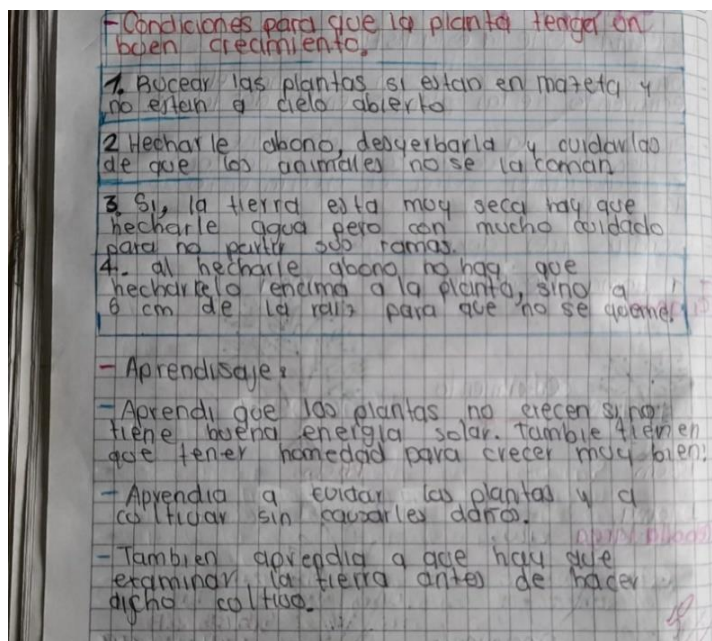 -Condiciones para que la planta tenga un
buen crecimiento.
1. Bocear las plantas si estan en mateta y
no estan a cielo abierto
2 Hecharle abono, desyerbarla y cuidarlas
de que los animales no se la coman
3. Si, la tierra esta muy seca hay que
hecharle agua pero con mucho cuidado
para no partir sus ramas.
4.- al hecharle abono no hay que
hecharselo encima a la planta, sino a
6 cm de la raiz para que no se queme.
- Aprendisaje:
- Aprendi que las plantas no crecen si no
tiene buena energia solar. Tambie tienen
que tener homedad para crecer muy bien.
- Aprendia a cuidar las plantas y a
coltivar sin causarles daños.
- Tambien aprendia a que hay que
examinar la tierra antes de hacer
dicho coltivo.